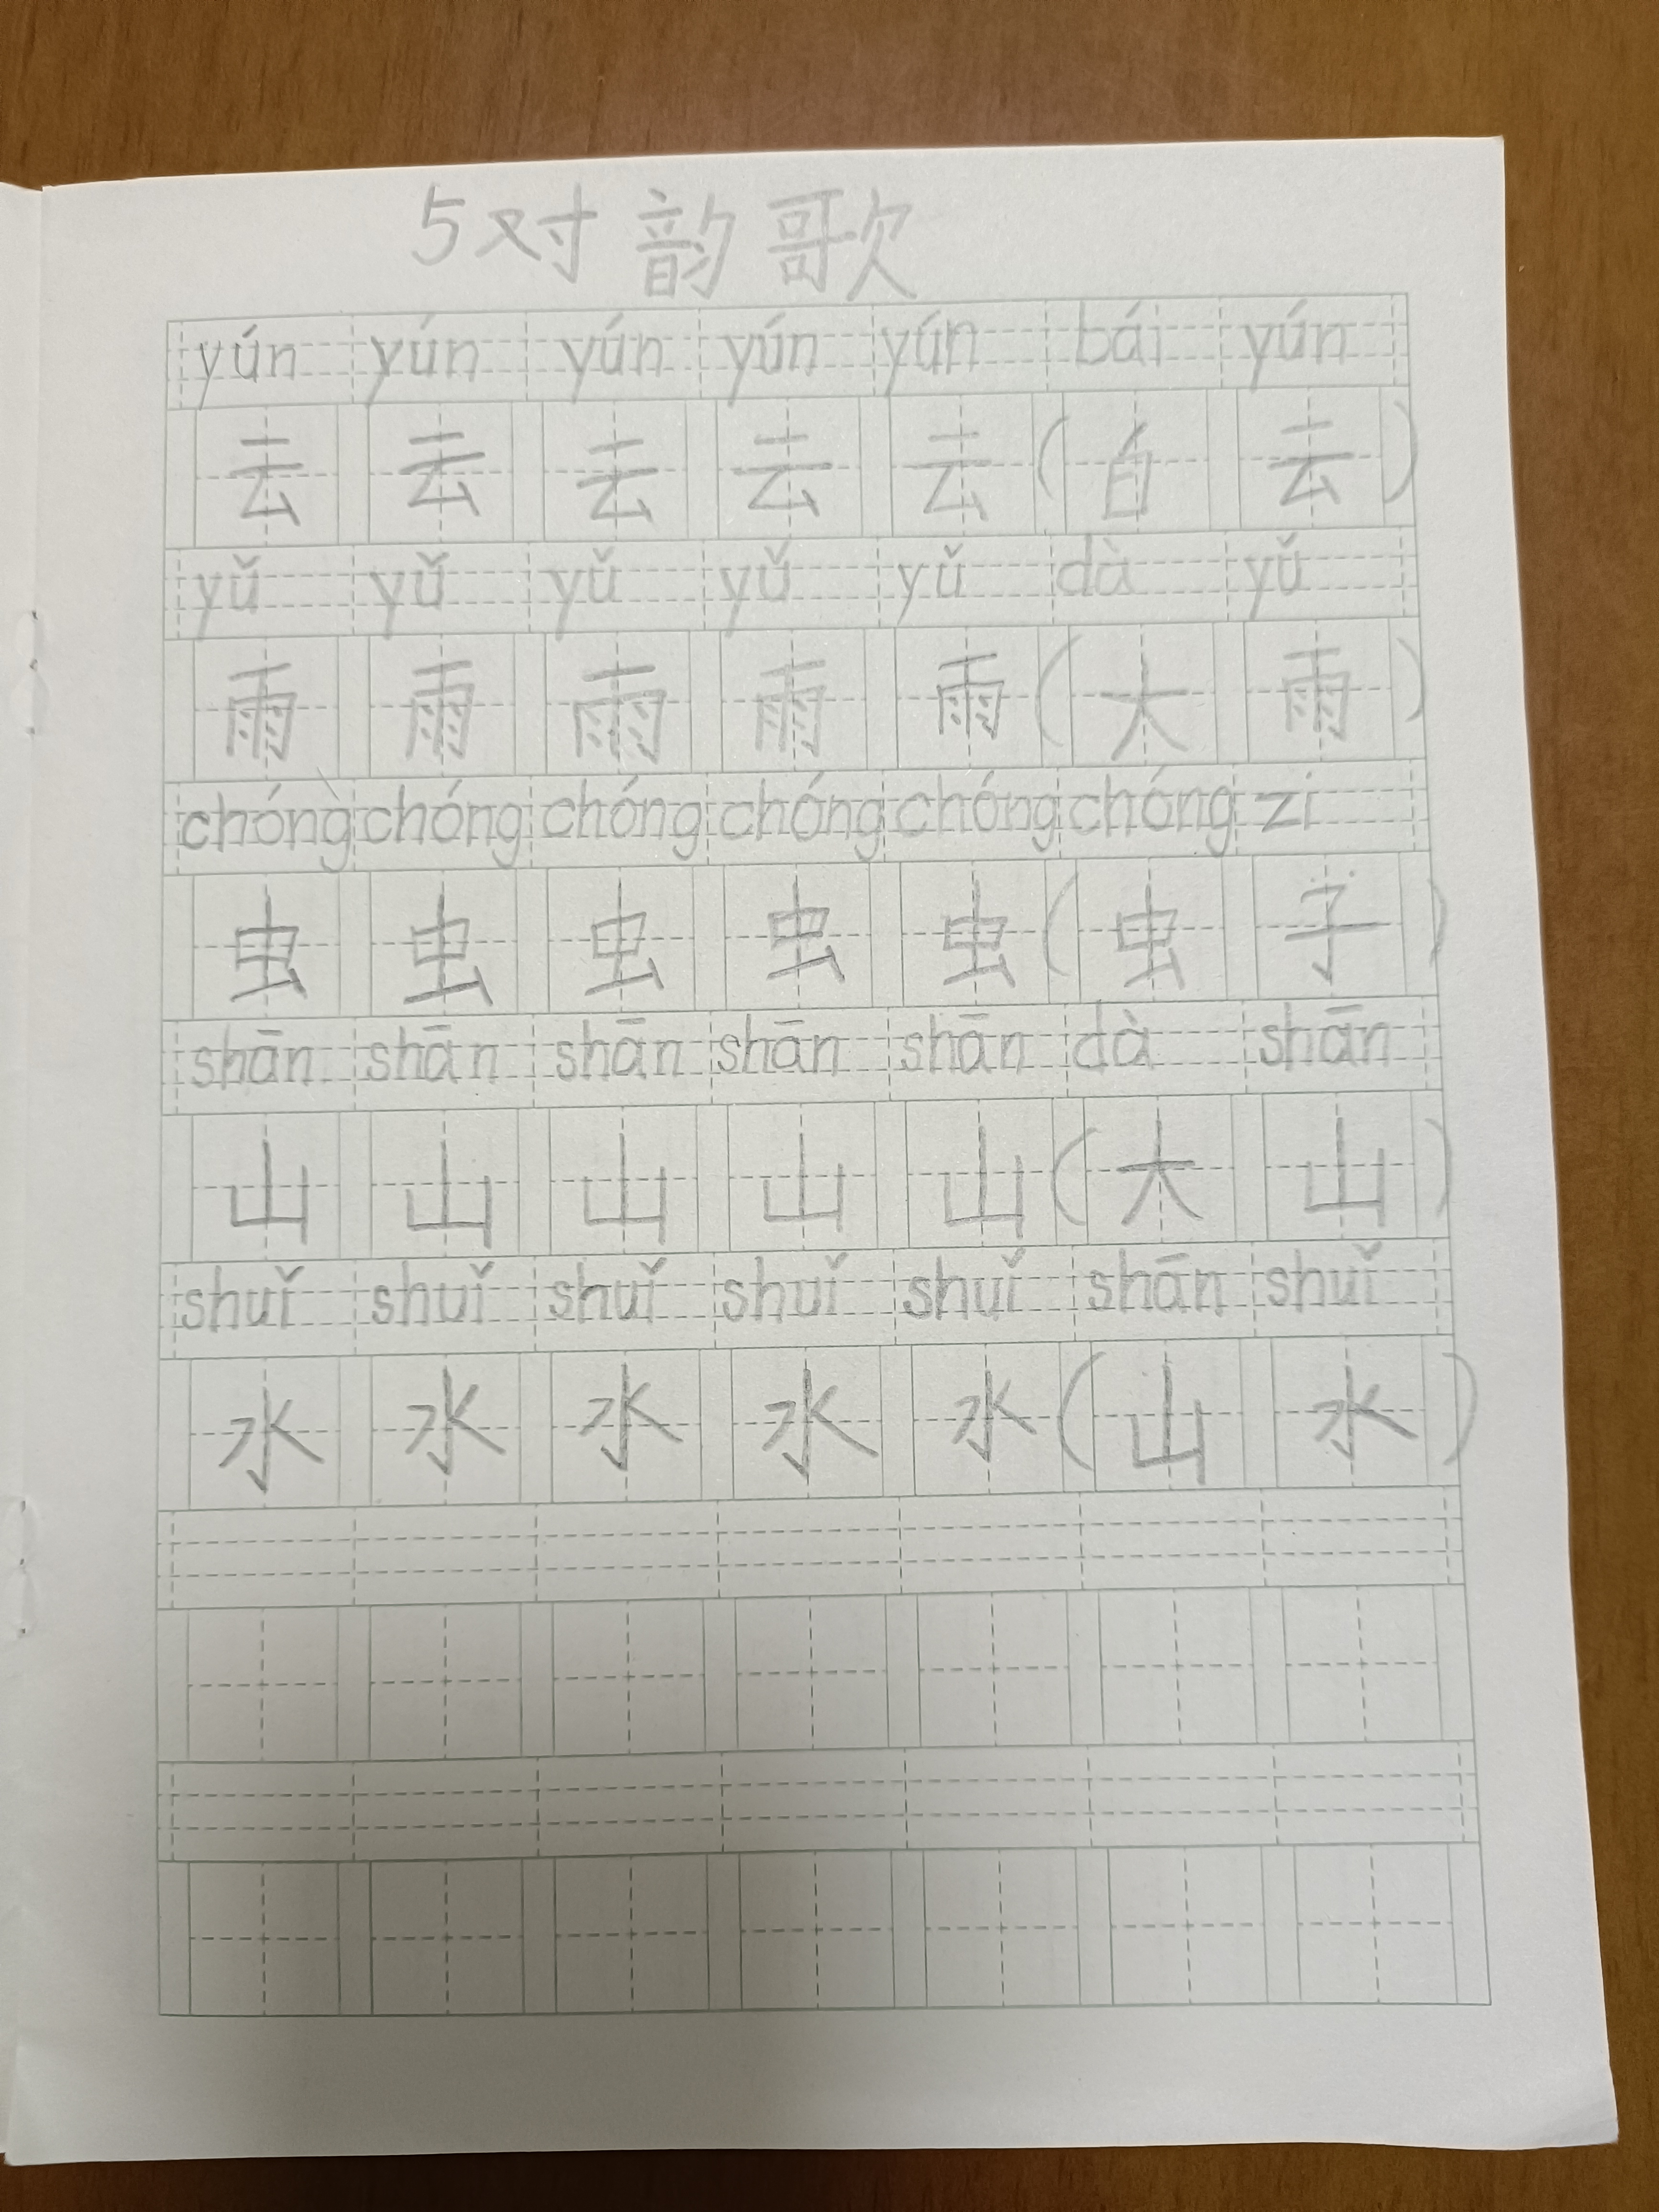 5 对韵歌
yún yún yún yún yún bái yún
云 云 云 云 云 (白 云)
yǔ yǔ yǔ yǔ yǔ dà yǔ
雨 雨 雨 雨 雨 (大 雨)
chóng chóng chóng chóng chóng chóng zi
虫 虫 虫 虫 虫 (虫 子)
shān shān shān shān shān dà shān
山 山 山 山 山 (大 山)
shuǐ shuǐ shuǐ shuǐ shuǐ shān shuǐ
水 水 水 水 水 (山 水)